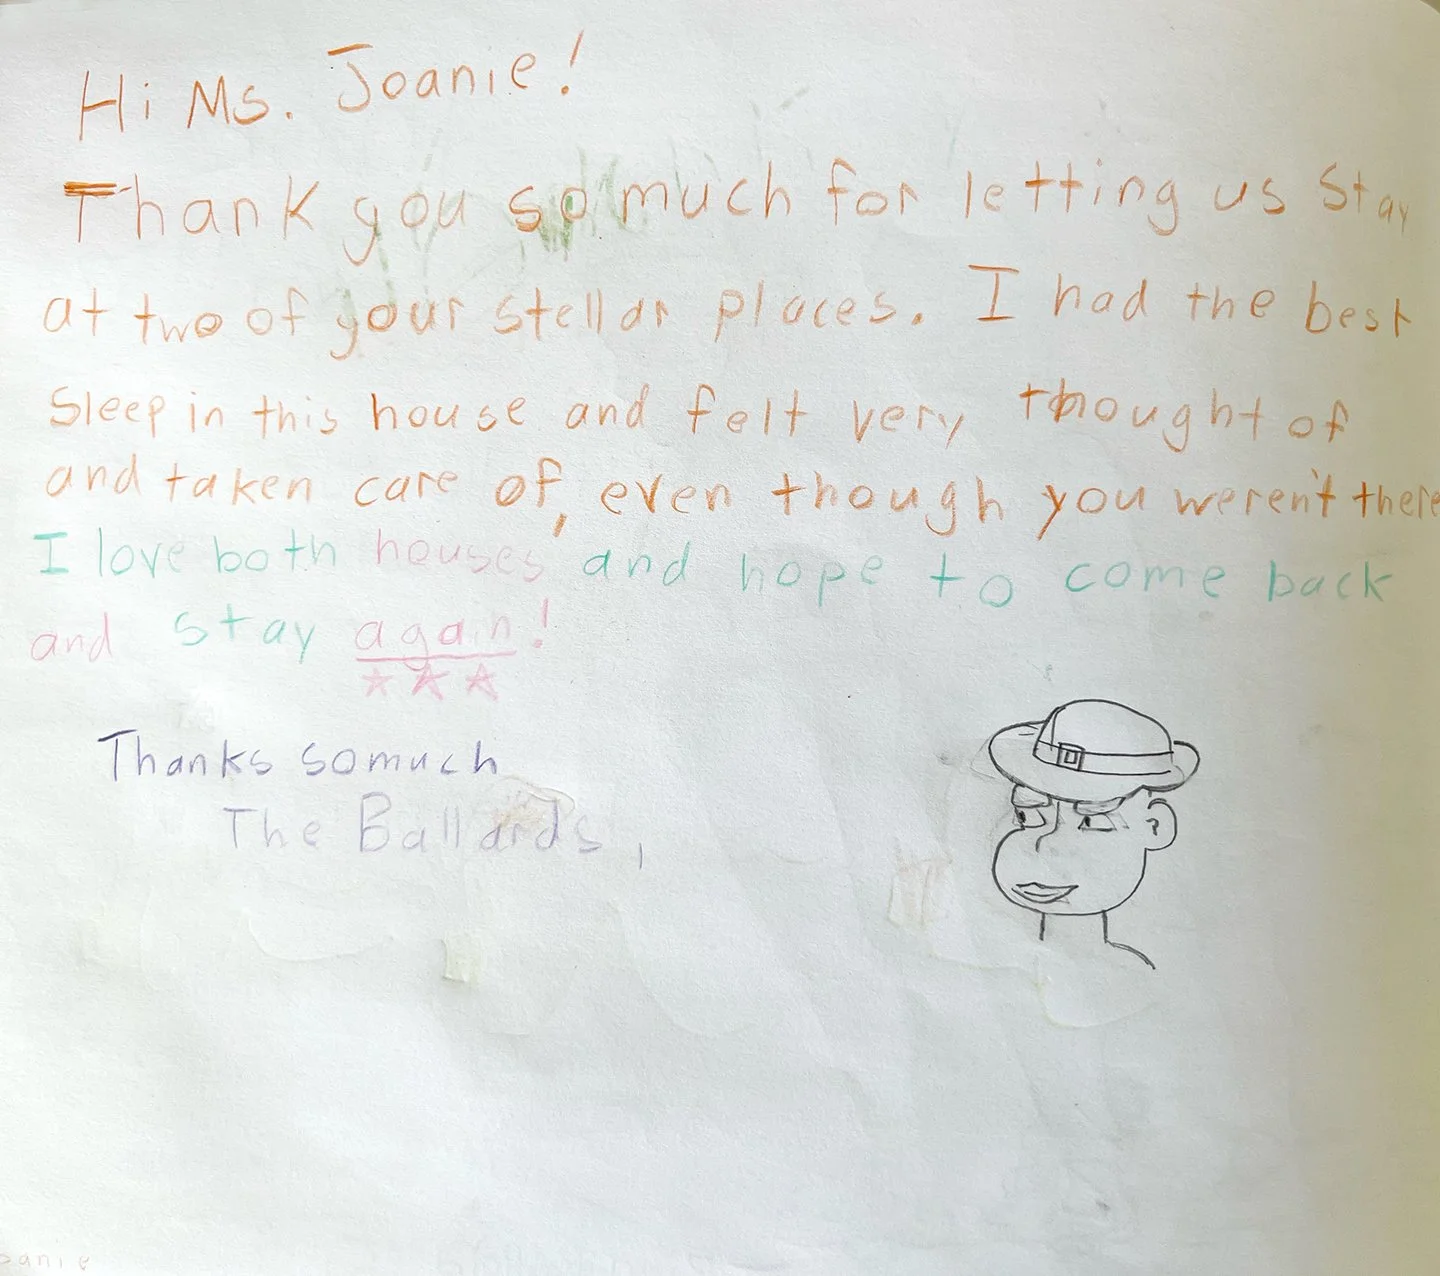 Hi Ms. Joanie!
Thank you so much for letting us stay
at two of your stellar places. I had the best
sleep in this house and felt very thought of
and taken care of, even though you weren't there
I love both houses and hope to come back
and stay again!
Thanks somuch
The Ballards,